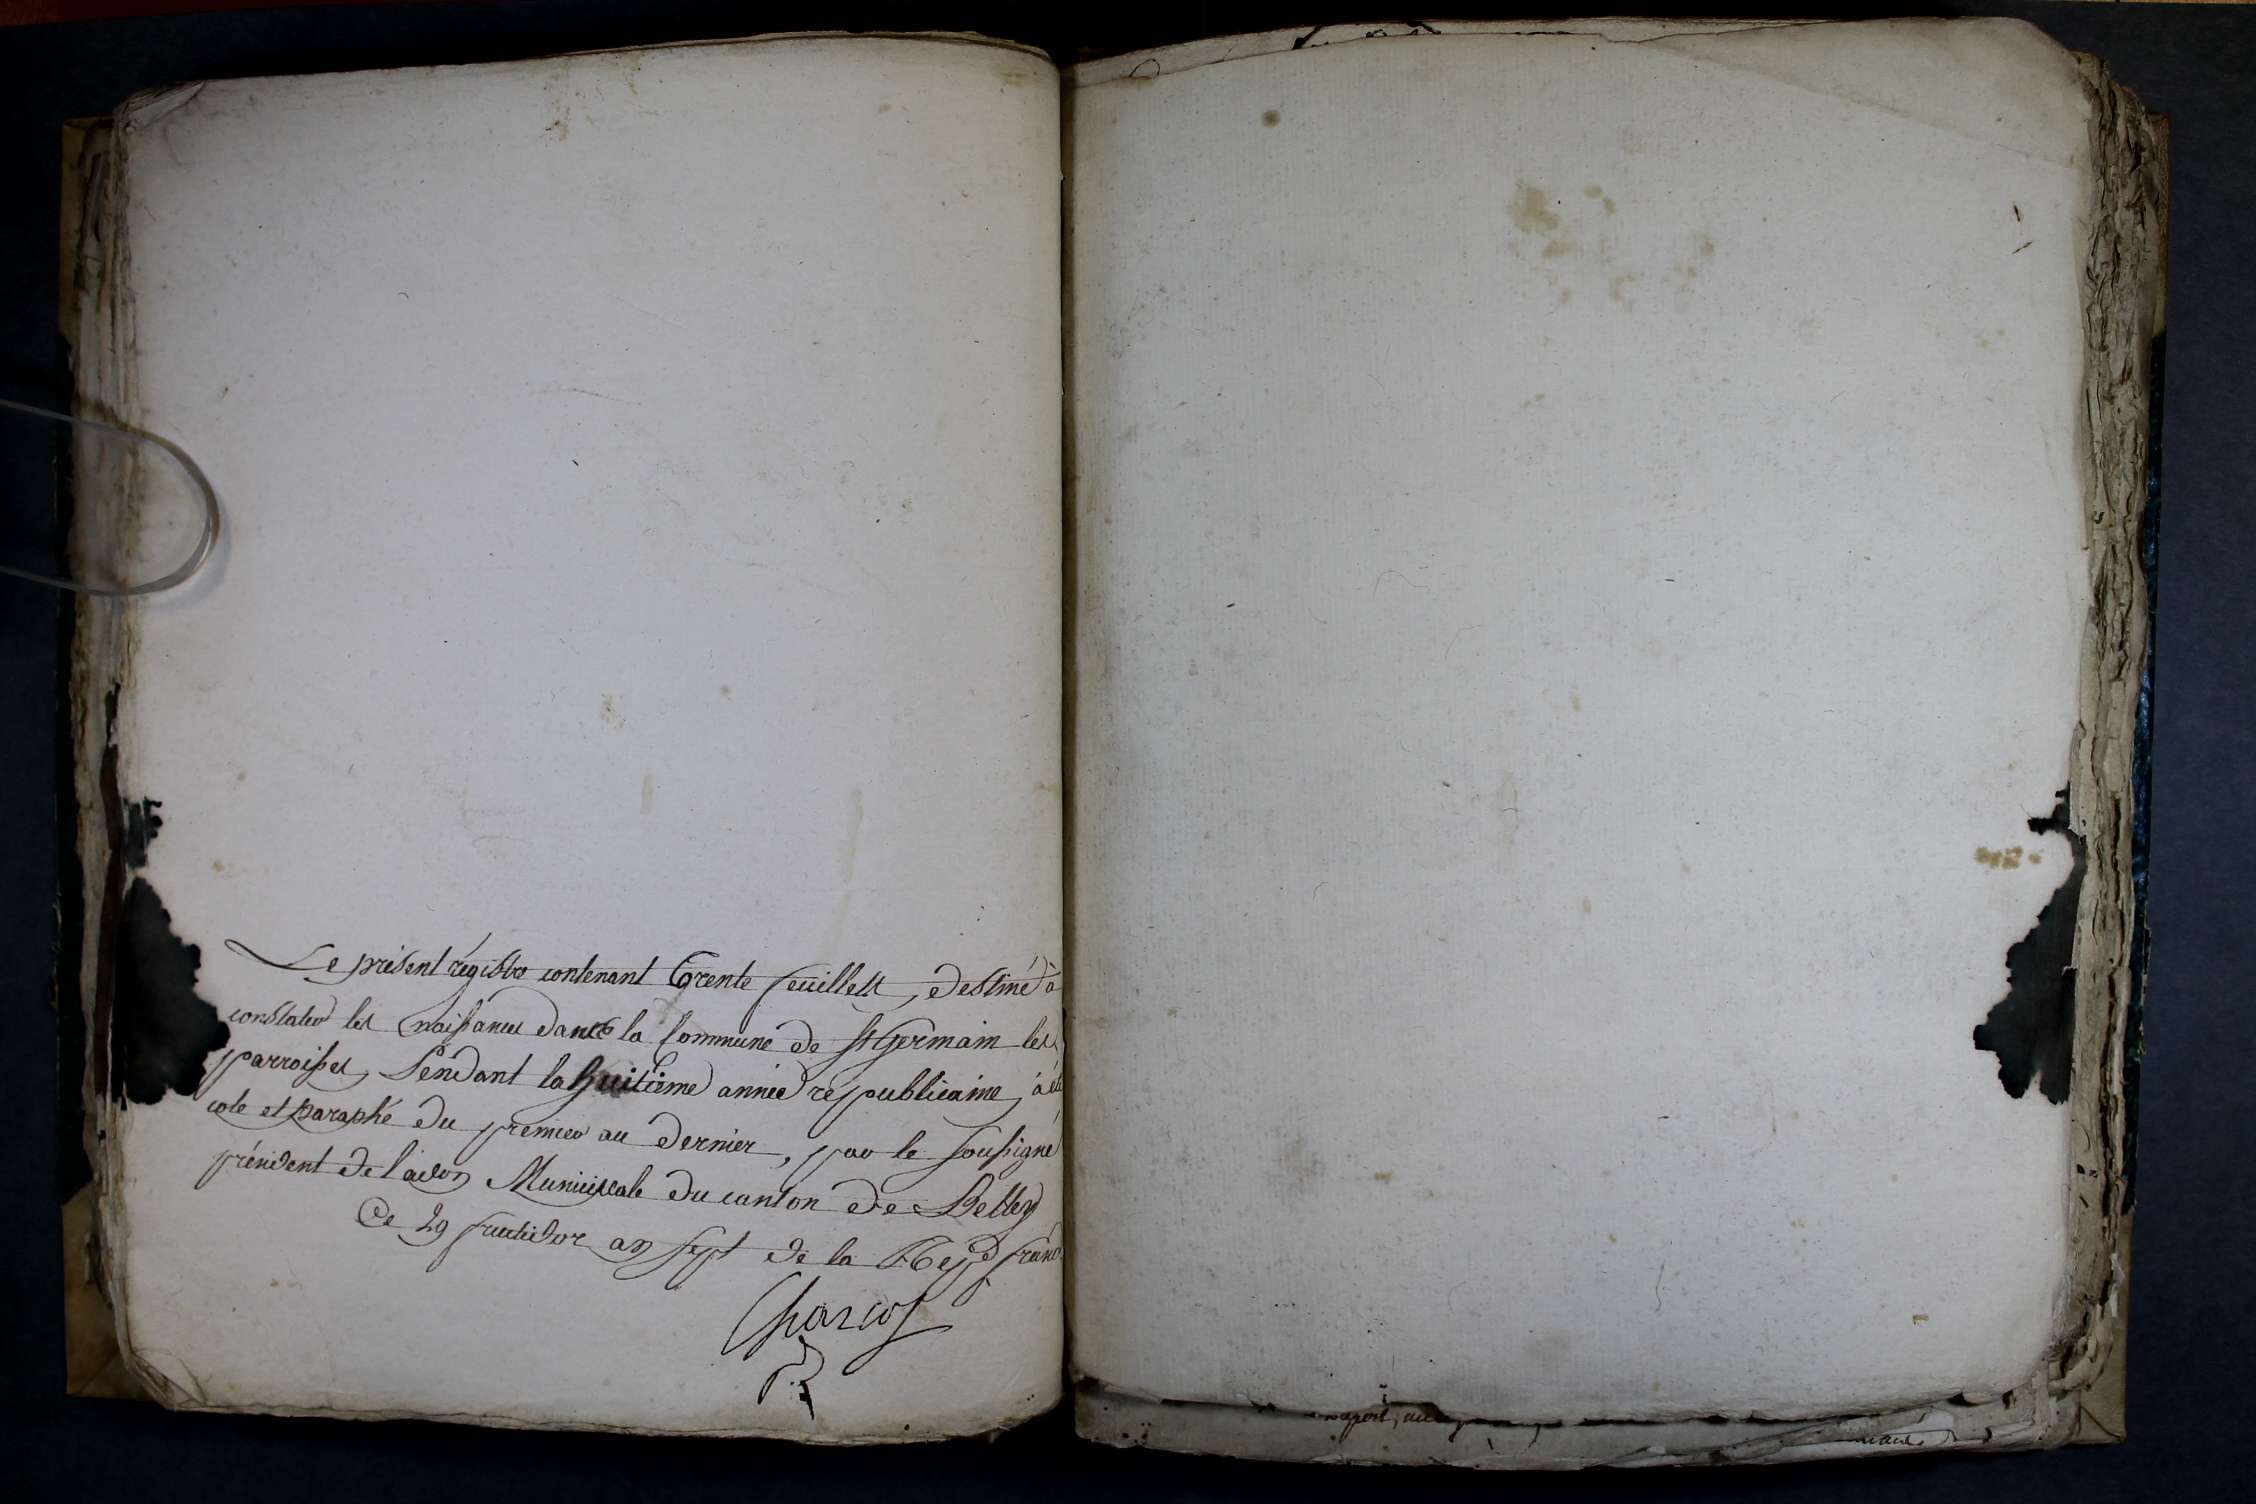 Le présent régistre contenant Trente feuillets, destiné à
constater les naissances dans la Commune de St Germain les
parroisses, Pendant la huitieme année republicaine, a été
coté et paraphé du premier au dernier, par le soussigné
président de l'adon Municipale du canton de Belley
Ce 29 fructidor an sept de la Repe franc
Charcot